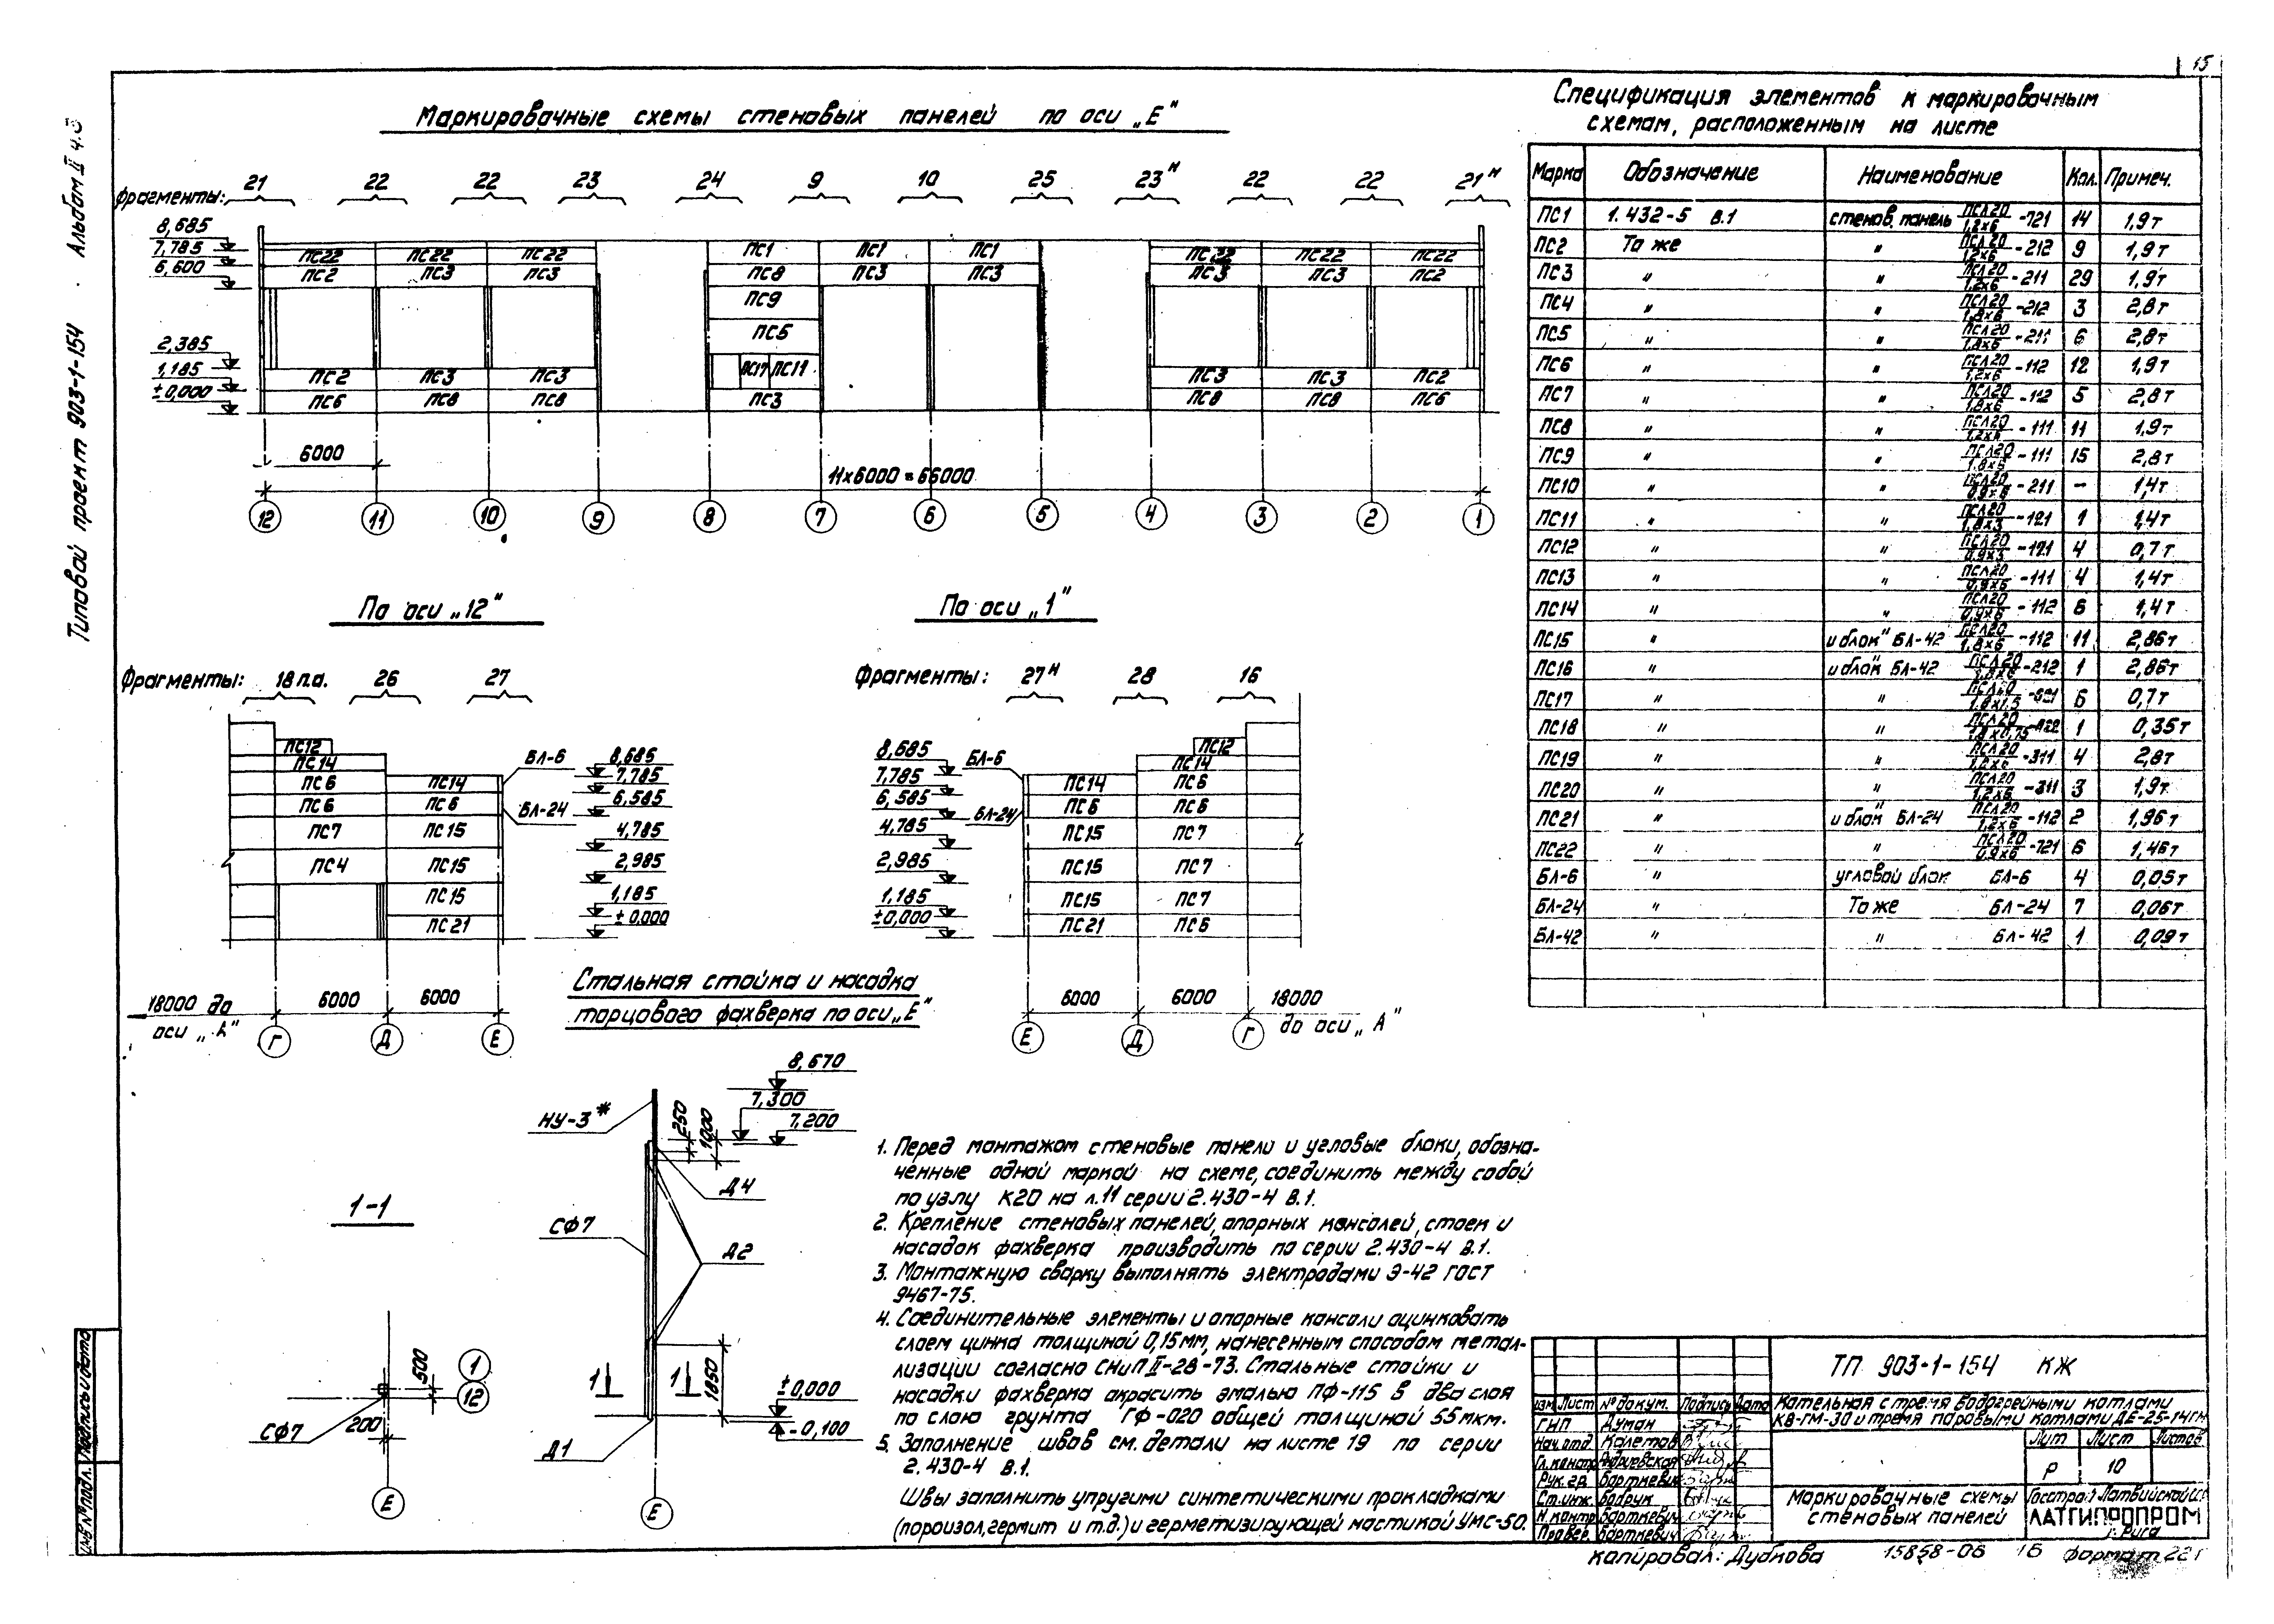 15
Типовой проект 903-1-154 Альбом II ч.3
Маркировочные схемы стеновых панелей по оси „Е"
Фрагменты: 21 22 22 23 24 9 10 25 23н 22 22 21н
8,685
7,785
6,600
2,385
1,185
±0,000
ПС22 ПС22 ПС22 ПС1 ПС1 ПС1 ПС22 ПС22 ПС22
ПС2 ПС3 ПС3 ПС8 ПС3 ПС3 ПС3 ПС3 ПС2
ПС9
ПС5
ПС17 ПС11
ПС2 ПС3 ПС3 ПС3 ПС3 ПС2
ПС6 ПС8 ПС8 ПС3 ПС8 ПС8 ПС6
6000
11х6000=66000
12 11 10 9 8 7 6 5 4 3 2 1
По оси „12"
Фрагменты: 18 п.а. 26 27
ПС12
ПС14
ПС6 ПС14
ПС6 ПС6
ПС7 ПС15
ПС4 ПС15
ПС15
ПС21
БЛ-6
БЛ-24
8,685
7,785
6,585
4,785
2,985
1,185
±0,000
18000 до
оси „А"
6000 6000
Г Д Е
По оси „1"
Фрагменты: 27н 28 16
8,685
7,785
6,585
4,785
2,985
1,185
±0,000
БЛ-6
БЛ-24
ПС12
ПС14
ПС14 ПС6
ПС6 ПС6
ПС15 ПС7
ПС15 ПС7
ПС15 ПС7
ПС21 ПС6
6000 6000 18000
до оси „А"
Е Д Г
Стальная стойка и насадка
торцового фахверка по оси „Е"
8,670
7,300
7,200
250
1000
НУ-3*
Д4
СФ7
Д2
1 1
1850
±0,000
-0,100
Д1
Е
1-1
500
1
12
СФ7
200
Е
1. Перед монтажом стеновые панели и угловые блоки, обозна-
ченные одной маркой на схеме, соединить между собой
по узлу К20 на л.11 серии 2.430-4 В.1.
2. Крепление стеновых панелей, опорных консолей, стоек и
насадок фахверка производить по серии 2.430-4 В.1.
3. Монтажную сварку выполнять электродами Э-42 ГОСТ
9467-75.
4. Соединительные элементы и опорные консоли оцинковать
слоем цинка толщиной 0,15мм, нанесенным способом метал-
лизации согласно СНиП II-28-73. Стальные стойки и
насадки фахверка окрасить эмалью ПФ-115 в два слоя
по слою грунта ГФ-020 общей толщиной 55мкм.
5. Заполнение швов см. детали на листе 19 по серии
2.430-4 В.1.
Швы заполнить упругими синтетическими прокладками
(пороизол, гермит и т.д.) и герметизирующей мастикой УМС-50.
Спецификация элементов к маркировочным
схемам, расположенным на листе
Марка Обозначение Наименование Кол. Примеч.
ПС1 1.432-5 В.1 стенов. панель ПСЛ20/1,2х6-721 14 1,9т
ПС2 То же " ПСЛ20/1,2х6-212 9 1,9т
ПС3 " " ПСЛ20/1,2х6-211 29 1,9т
ПС4 " " ПСЛ20/1,8х6-212 3 2,8т
ПС5 " " ПСЛ20/1,8х6-211 6 2,8т
ПС6 " " ПСЛ20/1,2х6-112 12 1,9т
ПС7 " " ПСЛ20/1,8х6-112 5 2,8т
ПС8 " " ПСЛ20/1,2х6-111 11 1,9т
ПС9 " " ПСЛ20/1,8х6-111 15 2,8т
ПС10 " " ПСЛ20/0,9х6-211 – 1,4т
ПС11 " " ПСЛ20/1,8х3-121 1 1,4т
ПС12 " " ПСЛ20/0,9х3-121 4 0,7т
ПС13 " " ПСЛ20/0,9х6-111 4 1,4т
ПС14 " " ПСЛ20/0,9х6-112 6 1,4т
ПС15 " и блок БЛ-42 ПСЛ20/1,8х6-112 11 2,86т
ПС16 " и блок БЛ-42 ПСЛ20/1,8х6-212 1 2,86т
ПС17 " " ПСЛ20/1,8х1,5-621 6 0,7т
ПС18 " " ПСЛ20/1,8х0,75 1 0,35т
ПС19 " " ПСЛ20 -311 4 2,8т
ПС20 " " ПСЛ20/1,2х6-311 3 1,9т
ПС21 " и блок БЛ-24 ПСЛ20/1,2х6-112 2 1,96т
ПС22 " " ПСЛ20/0,9х6-721 6 1,46т
БЛ-6 " угловой блок БЛ-6 4 0,05т
БЛ-24 " То же БЛ-24 7 0,06т
БЛ-42 " " БЛ-42 1 0,09т
ТП 903-1-154 КЖ
Котельная с тремя водогрейными котлами
КВ-ГМ-30 и тремя паровыми котлами ДЕ-25-14ГМ
Изм Лист № докум. Подпись Дата
ГИП Думан
Нач. отд Калетов
Гл. констр Андриевская
Рук. гр. Барткевич
Ст. инж. Бодрук
Н. контр Барткевич
Провер. Барткевич
Лит Лист Листов
Р 10
Маркировочные схемы
стеновых панелей
Госстрой Латвийской
ЛАТГИПРОПРОМ
г. Рига
Копировал: Дубкова 15858-06 16 Формат 22г
Инв № подл. Подпись и дата